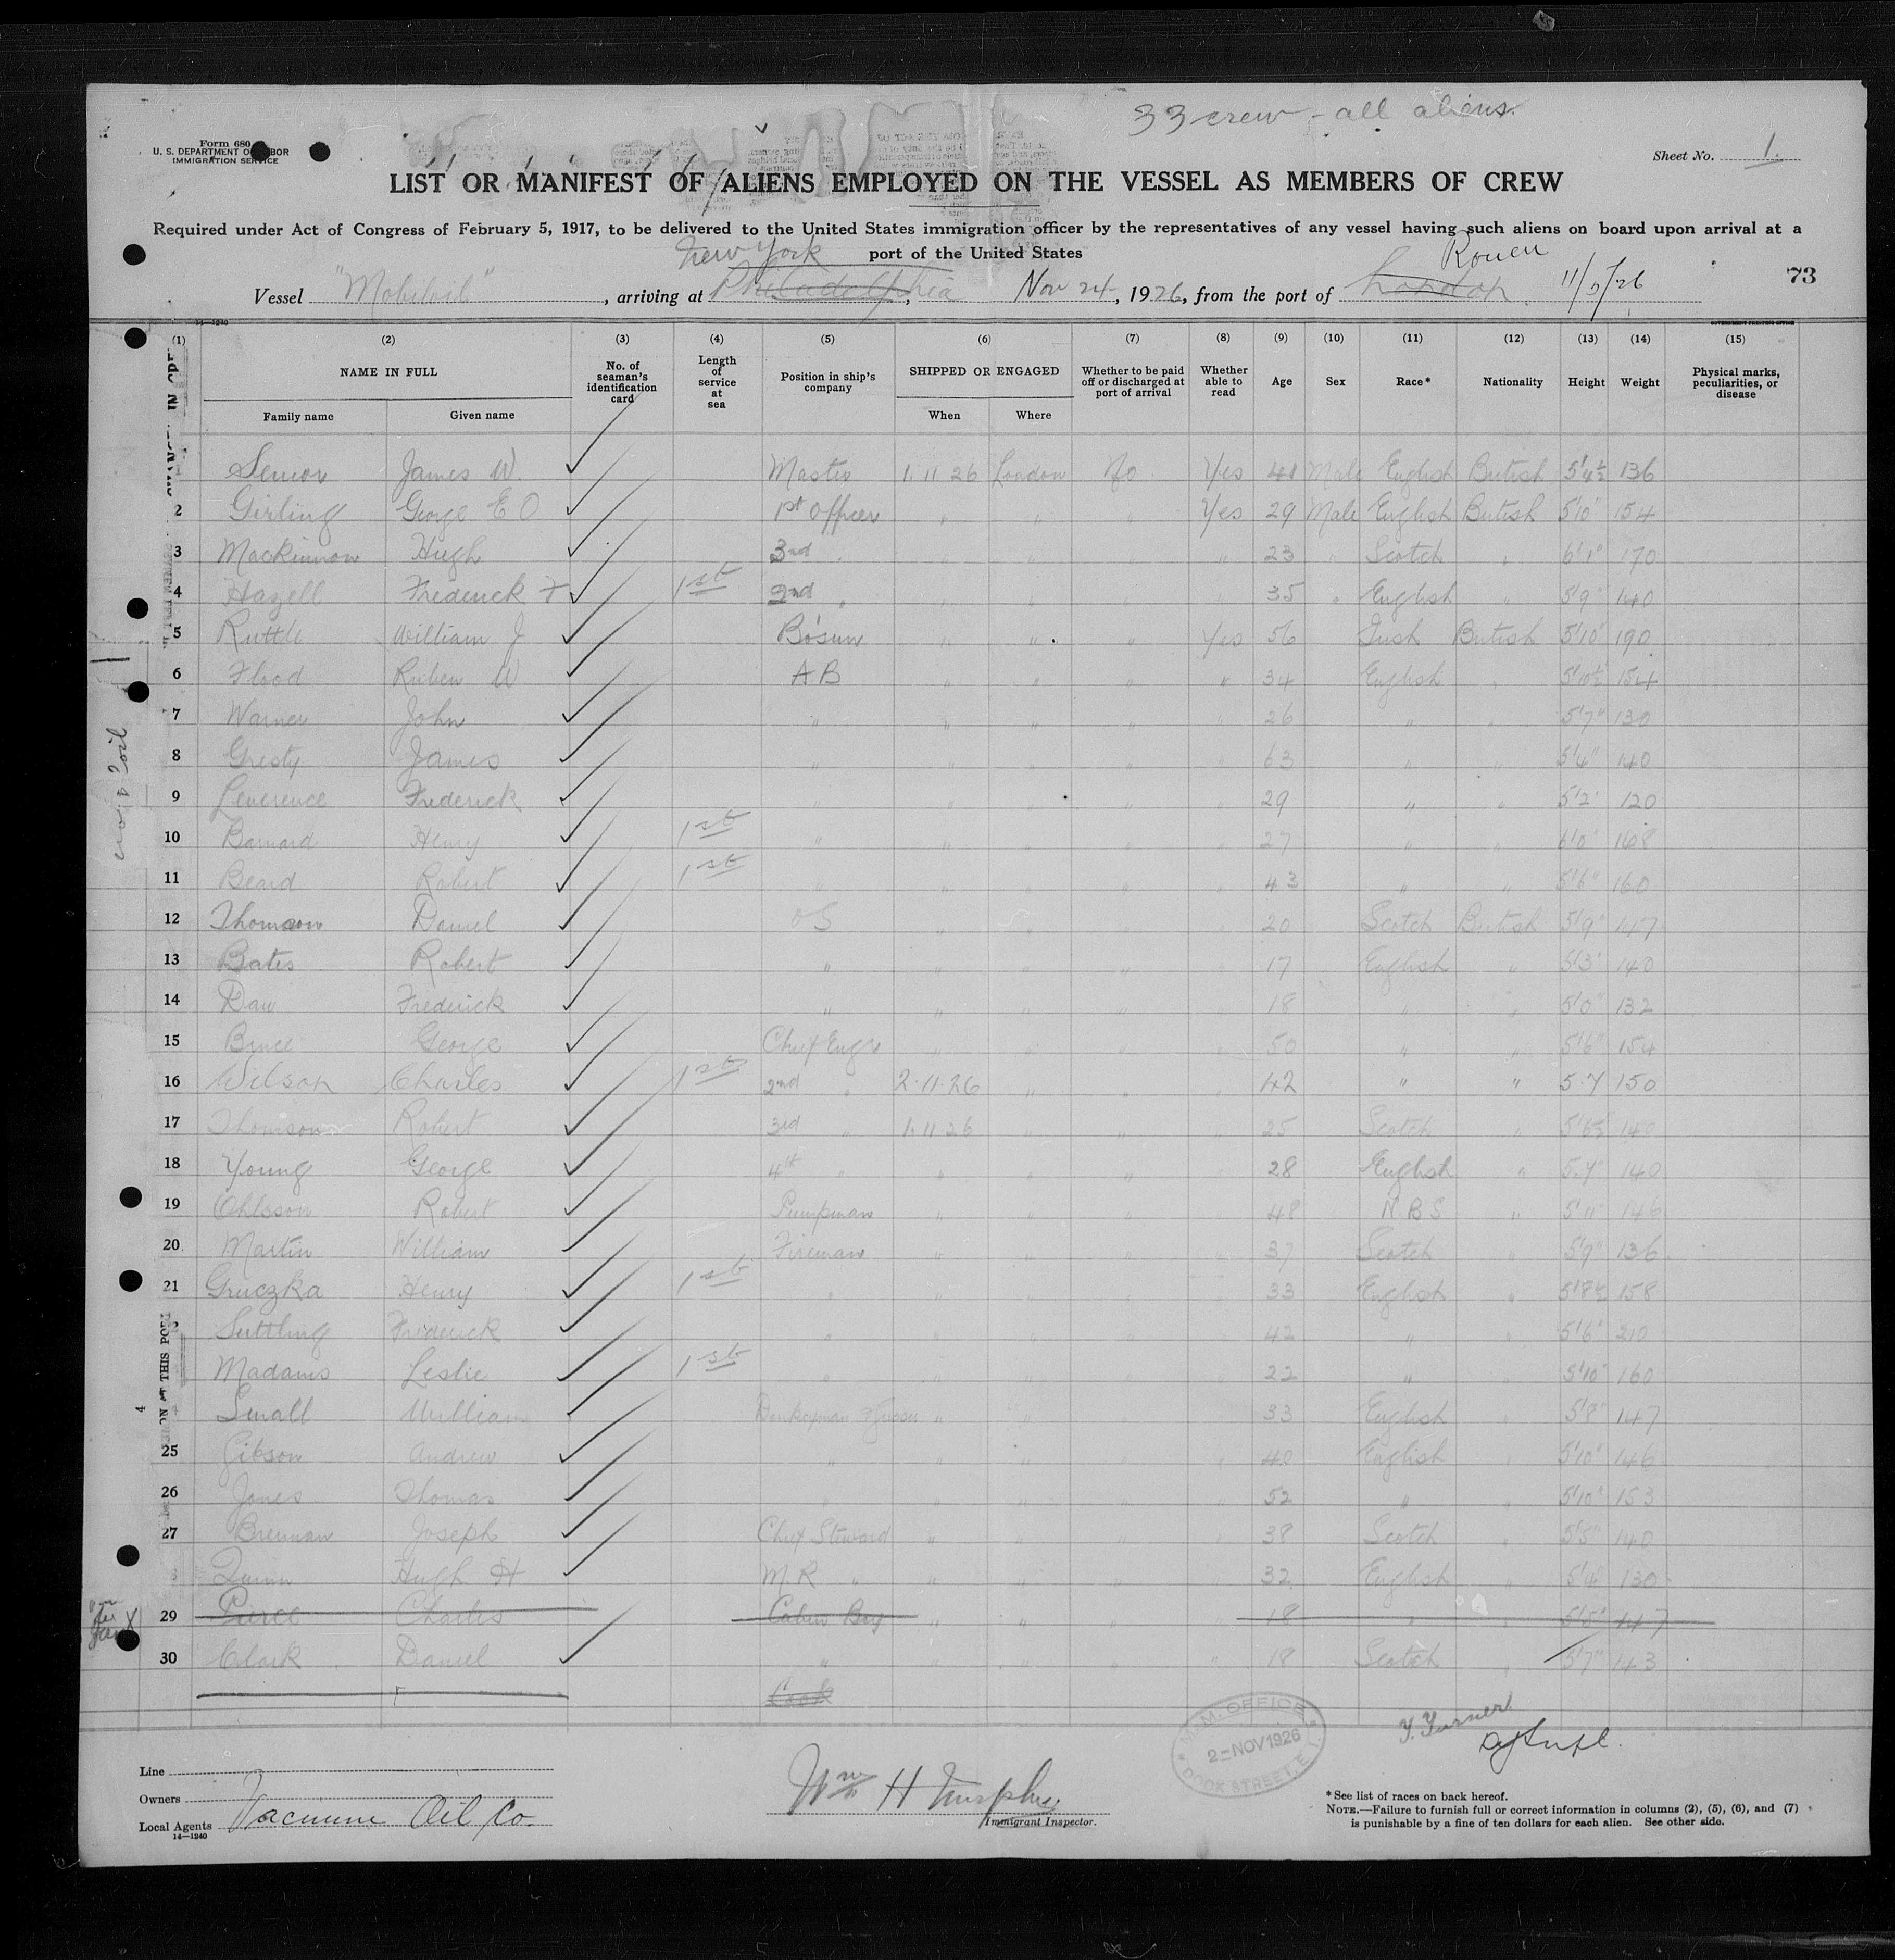 33 crew - all aliens.
Form 680
U. S. DEPARTMENT OF LABOR
IMMIGRATION SERVICE
Sheet No. 1.
LIST OR MANIFEST OF ALIENS EMPLOYED ON THE VESSEL AS MEMBERS OF CREW
Required under Act of Congress of February 5, 1917, to be delivered to the United States immigration officer by the representatives of any vessel having such aliens on board upon arrival at a
port of the United States
New York Rouen
Vessel "Mobiloil", arriving at Philadelphia, Nov 24, 1926, from the port of London. 11/9/26
73
14—1240
(1) (2) (3) (4) (5) (6) (7) (8) (9) (10) (11) (12) (13) (14) (15)
NAME IN FULL No. of seaman's identification card Length of service at sea Position in ship's company SHIPPED OR ENGAGED Whether to be paid off or discharged at port of arrival Whether able to read Age Sex Race* Nationality Height Weight Physical marks, peculiarities, or disease
Family name Given name When Where
Senior James W. Master 1.11 26 London No. Yes 41 Male English British 5'4½ 136
2 Girling George E O 1st Officer " " Yes 29 Male English British 5'10" 154
3 Mackinnon Hugh 3rd " " " " 23 " Scotch " 6'1" 170
4 Hazell Frederick F 1st 2nd " " " 35 " English " 5'9" 140
5 Ruttle William J Bosun " " " Yes 56 Irish British 5'10" 190
6 Flood Ruben W A B " " " " 34 English " 5'10½ 154
7 Warner John " " " " " 26 " " 5'7" 130
8 Gresty James " " " " 63 " " 5'4" 140
9 Leverence Frederick " " " " 29 " " 5'2" 120
10 Barnard Henry 1st " " " " " 27 " " 6'0" 168
11 Beard Robert 1st " " " " " 43 " " 5'6" 160
12 Thomson Daniel O S " " " " 20 Scotch British 5'9" 147
13 Bates Robert " " " " " 17 English " 5'3" 140
14 Daw Frederick " " " " " 18 " " 5'0" 132
15 Bruce George Chief Engr " " " " 50 " " 5'6" 154
16 Wilson Charles 1st 2nd " 2.11.26 " " " 42 " " 5.7 150
17 Thomson Robert 3rd " 1.11 26 " " " 25 Scotch " 140
18 Young George 4th " " " " " 28 English " 5.7" 140
19 Ohlsson Robert Pumpman " " " " 48 N B S " 5'11" 146
20 Martin William Fireman " " " " 37 Scotch " 5'9" 136
21 Gruczka Henry 1st " " " " " 33 English " 5'8½ 158
Suttling Frederick " " " " " 42 " " 5'6" 210
Madams Leslie 1st " " " " " 22 " " 5'10" 160
4 Small William Donkeyman & Greaser " " " " 33 English " 5'8" 147
25 Gibson Andrew " " " " " 40 English " 5'10" 146
26 Jones Thomas " " " " " 52 " " 5'10" 153
27 Brennan Joseph Chief Steward " " " " 38 Scotch " 5'5" 140
Quinn Hugh H M R " " " " " 32 English " 5'4" 130
29 Pierce Charles Cabin Boy " " " " 18 " " 5'5" 147
30 Clark Daniel " " " " 18 Scotch " 5'7" 143
Cook
M. M. OFFICE
2-NOV1926
DOCK STREET, E.1
Y. Turner
Line
Owners
Local Agents Vacuum Oil Co.
14—1240
Wm H Murphy
Immigrant Inspector.
*See list of races on back hereof.
NOTE.—Failure to furnish full or correct information in columns (2), (5), (6), and (7)
is punishable by a fine of ten dollars for each alien. See other side.